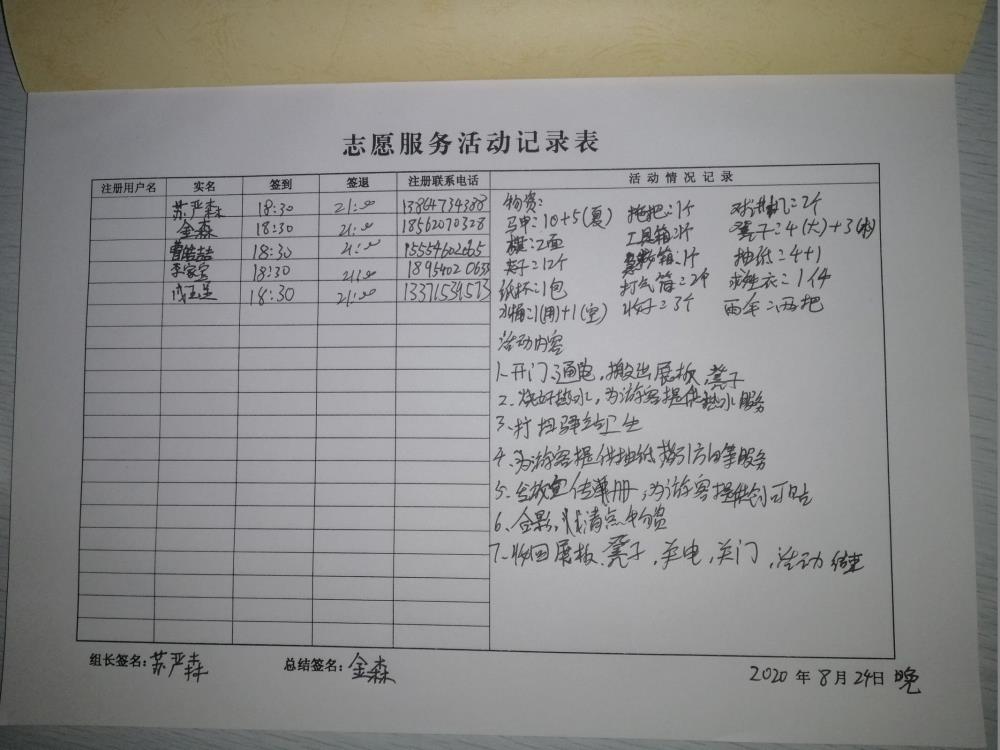 志愿服务活动记录表
注册用户名 实名 签到 签退 注册联系电话 活动情况记录
苏严森 18:30 21:00 13864734388
金森 18:30 21:00 18562070328
18:30 21:00 15554602665
李家宝 18:30 21:00
18:30 21:00
物资:
马甲:10+5(夏) 拖把:1个 对讲机:2个
棋:2面 工具箱:1个 凳子:4(大)+3(小)
夹子:12个 箱:1个 抽纸:4+1
纸杯:1包 打气筒:2个 救生衣:1件
水桶:1(用)+1(空) 3个 雨伞:两把
活动内容
1.开门、通电,搬出展板、凳子
2、烧好热水,为游客提供热水服务
3、打扫驿站卫生
4、为游客提供抽纸,指引方向等服务
5、发放宣传单册,为游客提供创可贴
6、合影,清点物资
7、收回展板、凳子,关电,关门,活动结束
组长签名:苏严森 总结签名:金森 2020年8月24日晚